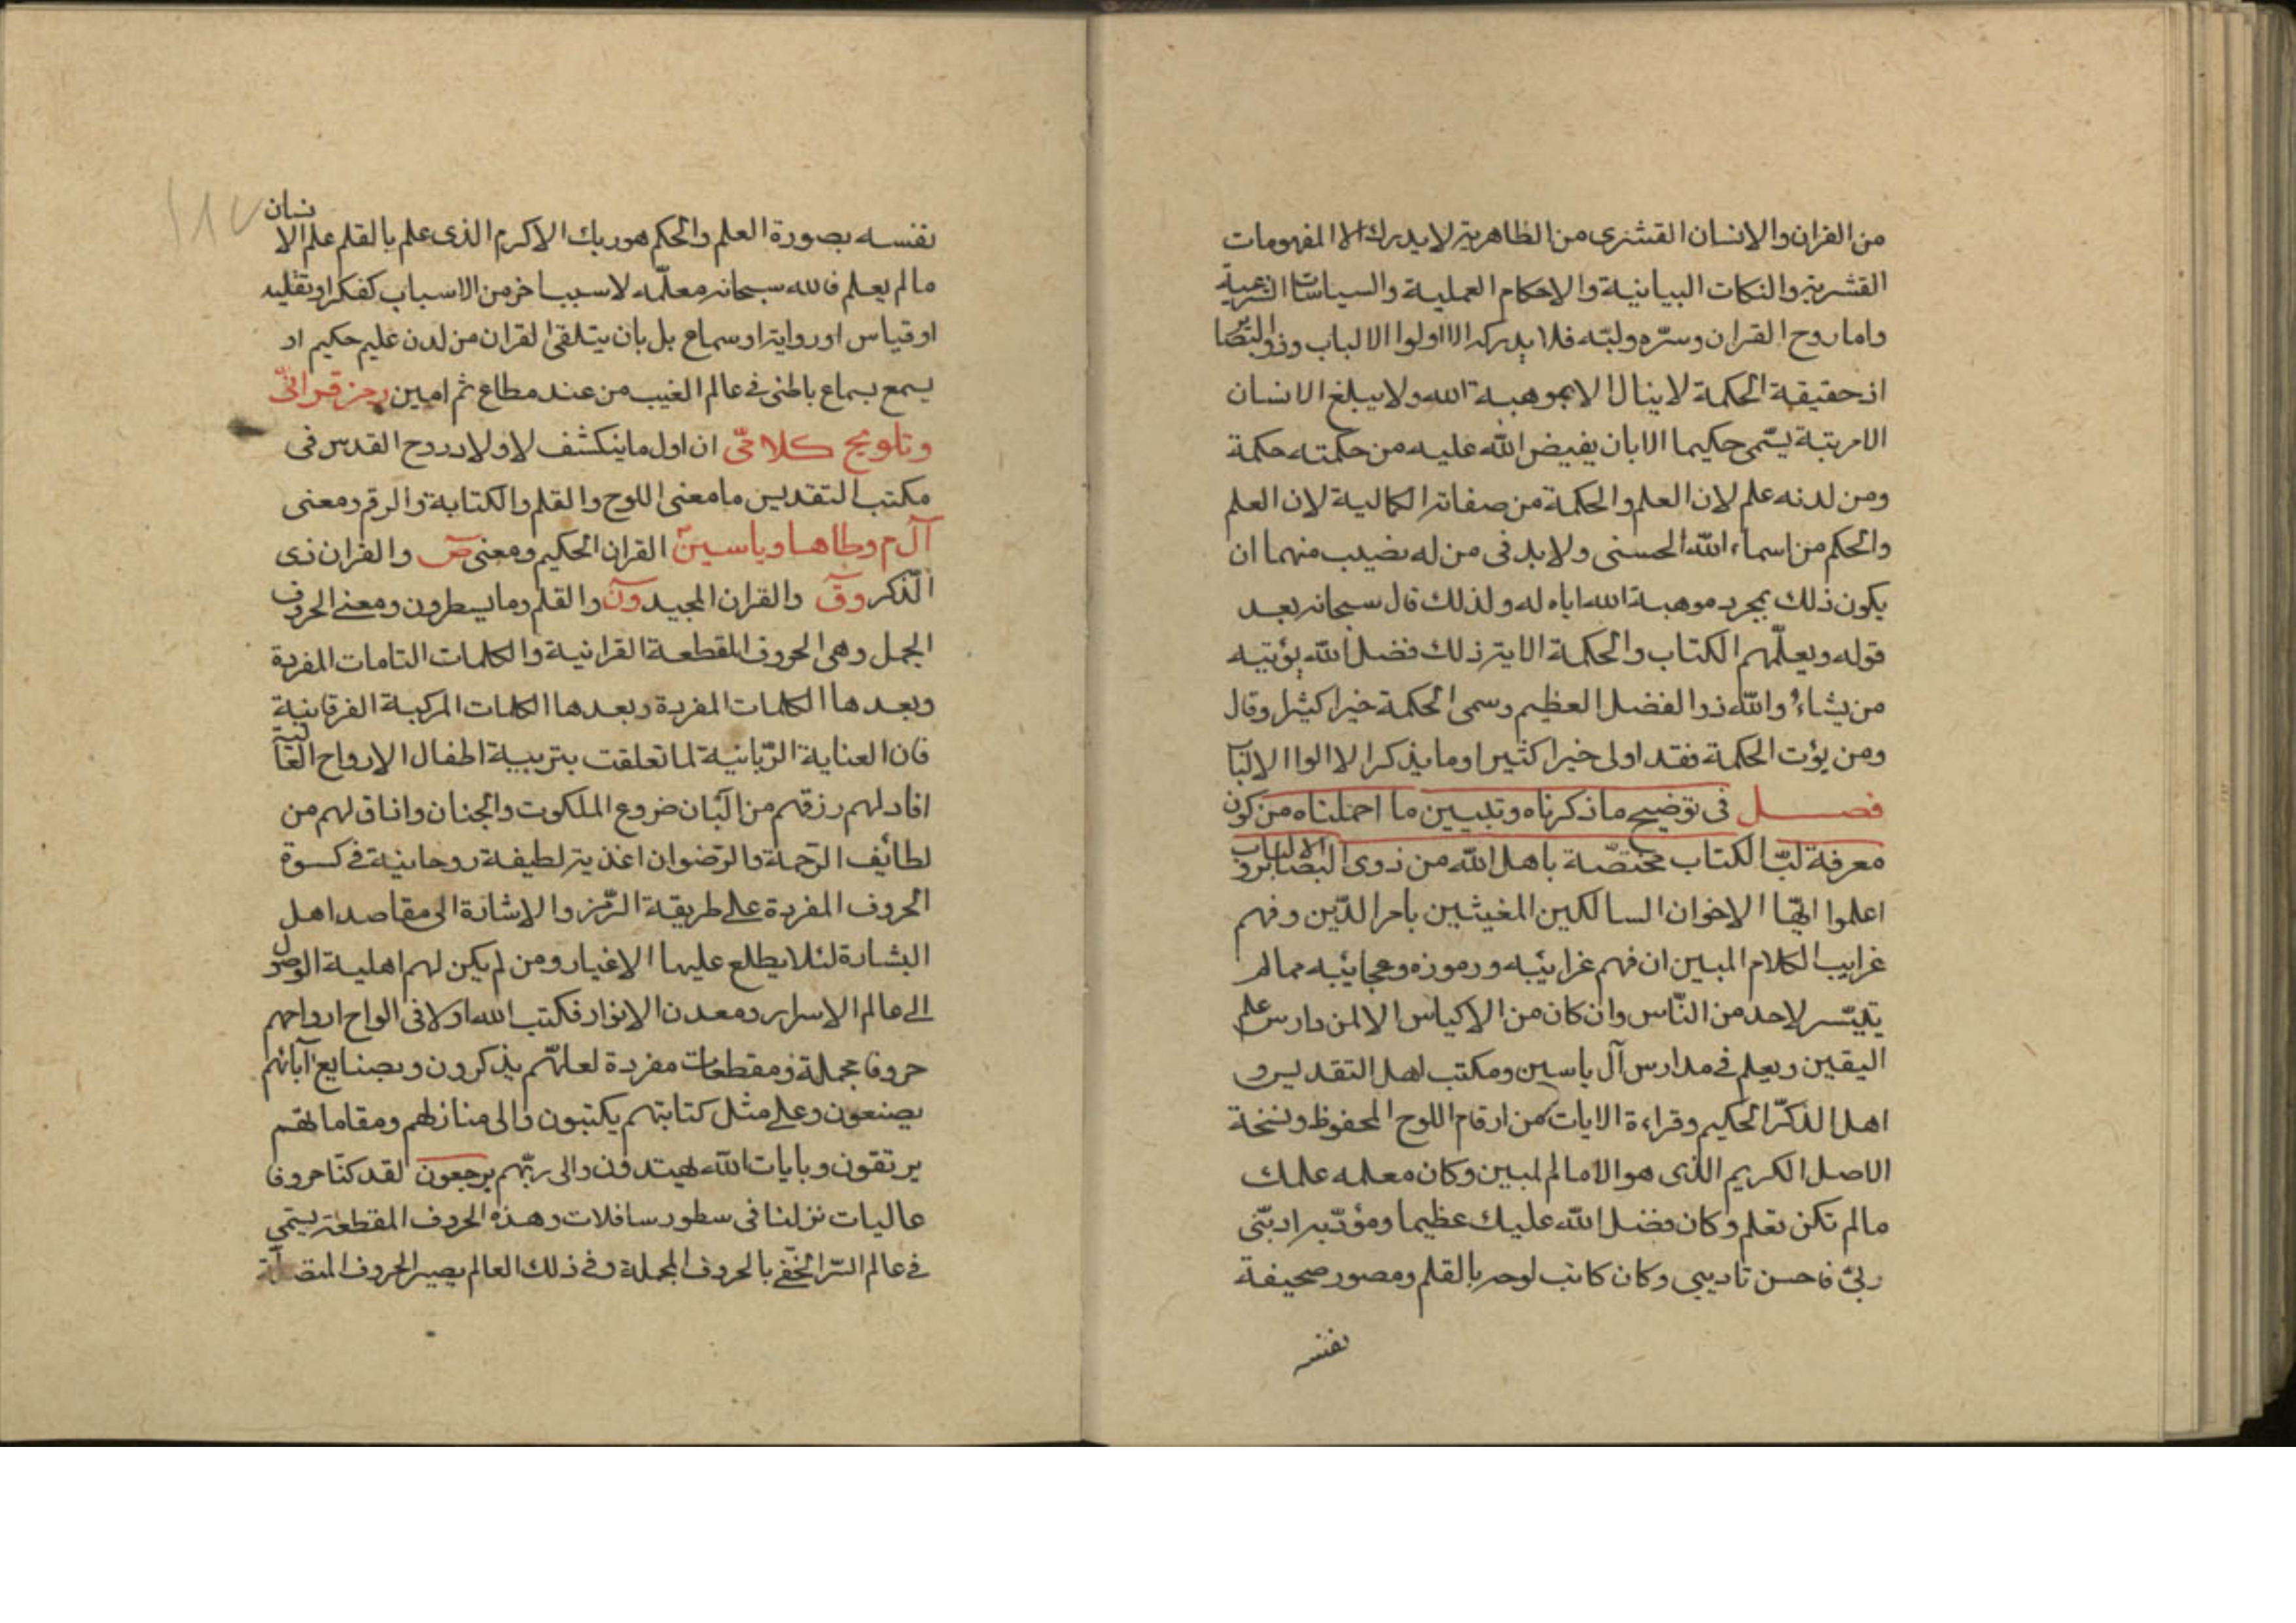 من القران والانسان القشرى من الظاهرية لا يدرك الا المفهومات
القشرية والنكات البيانية والاحكام العملية والسياسات الشرعية
واما روح القران وسرّه ولبّه فلا يدركه الا اولوا الالباب وذوو البصاير
اذ حقيقة الحكمة لا ينال الا بموهبة الله ولا يبلغ الانسان
الا مرتبة يسّمى حكيما الا بان يفيض الله عليه من حكمته حكمة
ومن لدنه علم لان العلم والحكمة من صفاته الكمالية لان العلم
والحكم من اسماء الله الحسنى ولا بد فى من له نصيب منهما ان
يكون ذلك بمجرد موهبة الله اياه له ولذلك قال سبحانه بعد
قوله ويعلّمهم الكتاب والحكمة الاية ذلك فضل الله يؤتيه
من يشاء والله ذو الفضل العظيم وسمى الحكمة خيرا كثيرا وقال
ومن يؤت الحكمة فقد اوتى خيرا كثيرا وما يذكر الا الوا الالباب
فصل فى توضيح ما ذكرناه وتبيين ما اجملناه من كون
معرفة لبّ الكتاب مختصّة باهل الله من ذوى البصاير و الالباب
اعلموا ايّها الاخوان السالكين المغيثين بامر الدّين وفهم
غرايب الكلام المبين ان فهم غرائبه ورموزه وعجائبه مما لم
يتيسّر لاحد من النّاس وان كان من الاكياس الا لمن دارس علم
اليقين ويعلم فى مدارس آل ياسين ومكتب اهل التقديس و
اهل الذكر الحكيم وقراءة الايات من ارقام اللوح المحفوظ ونسخة
الاصل الكريم الذى هو الامام المبين وكان معلمه علمك
ما لم تكن تعلم وكان فضل الله عليك عظيما ومؤدّبه ادبّنى
ربى فاحسن تاديبى وكان كاتب لوحه بالقلم ومصور صحيفة
نفسه
نفسه بصورة العلم والحكم هو ربك الاكرم الذى علم بالقلم علم الانسان
ما لم يعلم فالله سبحانه معلّمه لا سببا خر من الاسباب كفكر او تقليد
او قياس او رواية او سماع بل بان يتلقى القران من لدن عليم حكيم او
يسمع بسماع باطنى فى عالم الغيب من عند مطاع ثم امين رمز قرانّى
وتلويح كلامّى ان اول ما ينكشف لاولاد روح القدس فى
مكتب التقديس ما معنى اللوح والقلم والكتابة والرقم ومعنى
آلم وطاها وياسين القران الحكيم ومعنى ص والقران ذى
الذكر وق والقران المجيد ون والقلم وما يسطرون ومعنى الحروف
الجمل وهى الحروف المقطعة القرانية والكلمات التامات المفردة
وبعدها الكلمات المفردة وبعدها الكلمات المركبة الفرقانية
فان العناية الرّبانية لما تعلقت بتربية اطفال الارواح العالية
افاد لهم رزقهم من البان ضروع الملكوت والجنان واذاق لهم من
لطائف الرّحمة والرّضوان اغذية لطيفة روحانية فى كسوة
الحروف المفردة على طريقة الرّمز والاشارة الى مقاصد اهل
البشارة لئلا يطلع عليها الاغيار ومن لم يكن لهم اهلية الوصول
الى عالم الاسرار ومعدن الانوار فكتب الله اولا فى الواح ارواحهم
حروفا مجملة ومقطعات مفردة لعلّهم يذكرون وبصنايع آبائهم
يصنعون وعلى مثل كتابتهم يكتبون والى منازلهم ومقاماتهم
يرتقون وبايات الله يهتدون والى ربّهم يرجعون لقد كنّا حروفا
عاليات نزلنا فى سطور سافلات وهذه الحروف المقطعة يسّمى
فى عالم السّر الخفى بالحروف المجملة وفى ذلك العالم يصير الحروف المتصلة